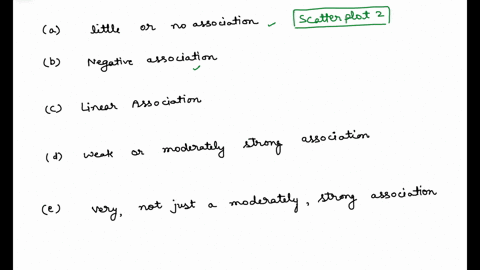 (a) little or no association Scatterplot 2
(b) Negative association
(c) Linear Association
(d) weak or moderately strong association
(e) very, not just a moderately, strong association